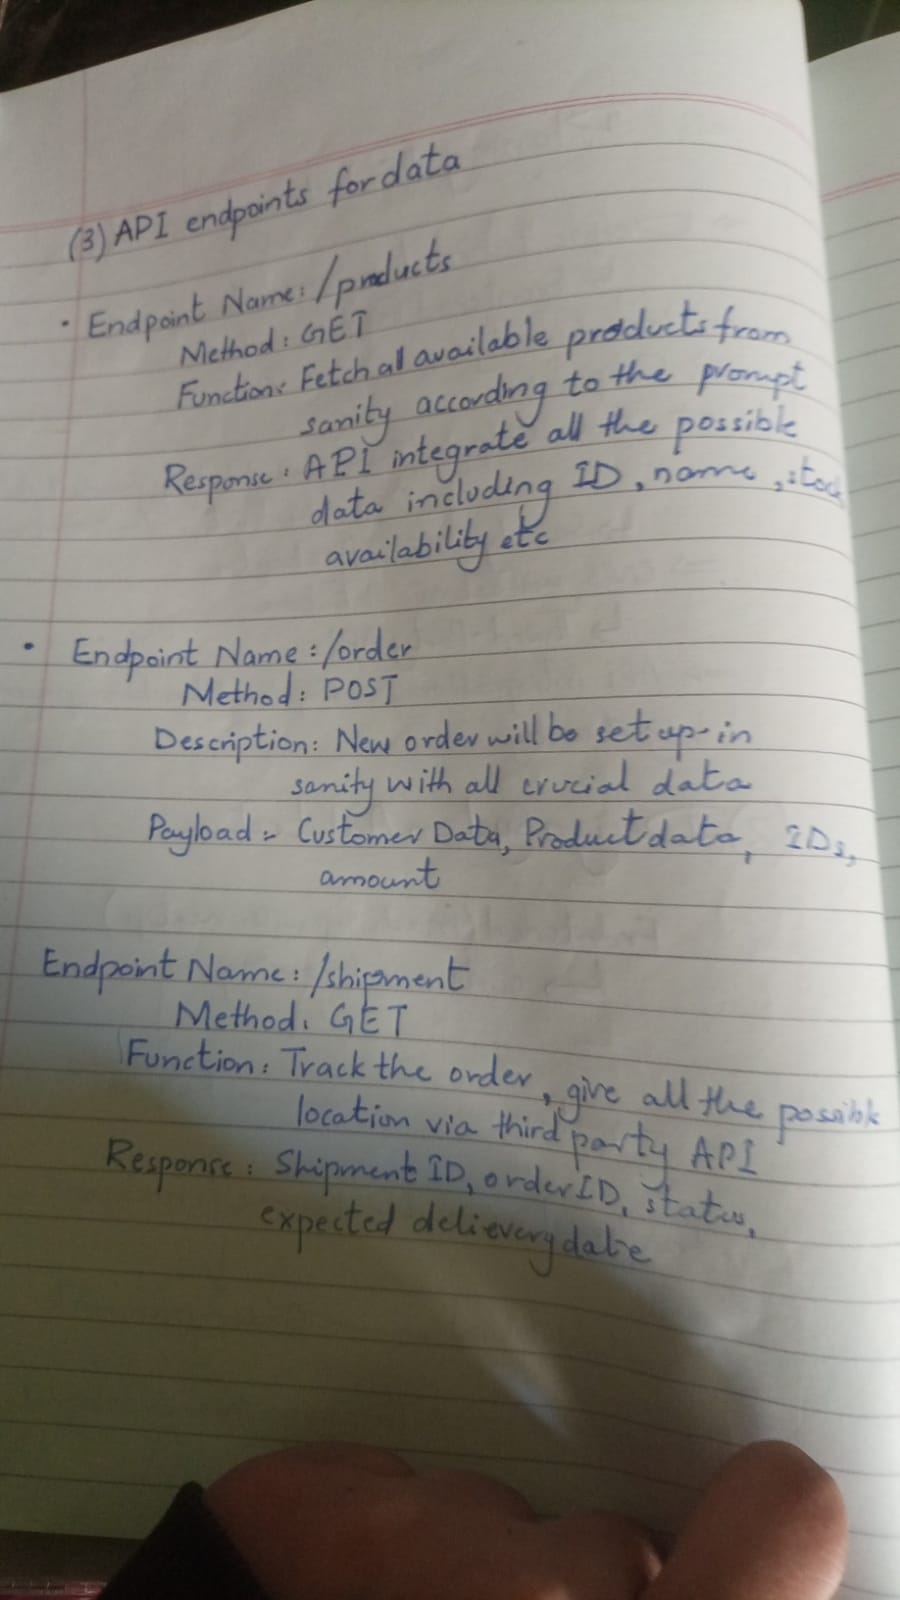 (3) API endpoints for data
• Endpoint Name: /products
Method: GET
Function: Fetch al available products from
sanity according to the prompt
Response: API integrate all the possible
data including ID, name, stock
availability etc
• Endpoint Name: /order
Method: POST
Description: New order will be set up in
sanity with all crucial data
Payload: Customer Data, Product data, IDs,
amount
Endpoint Name: /shipment
Method: GET
Function: Track the order, give all the possible
location via third party API
Response: Shipment ID, order ID, status,
expected delievery date